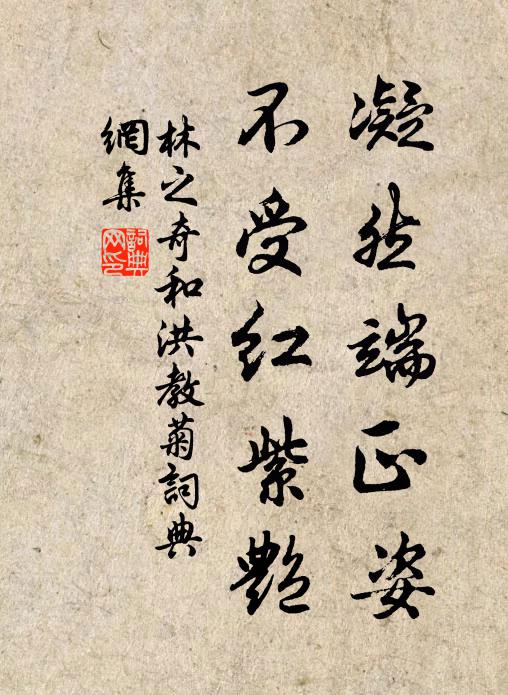 凝然端正姿
不受红紫艷
林之奇和洪教菊詞典
網集
詞典
网印